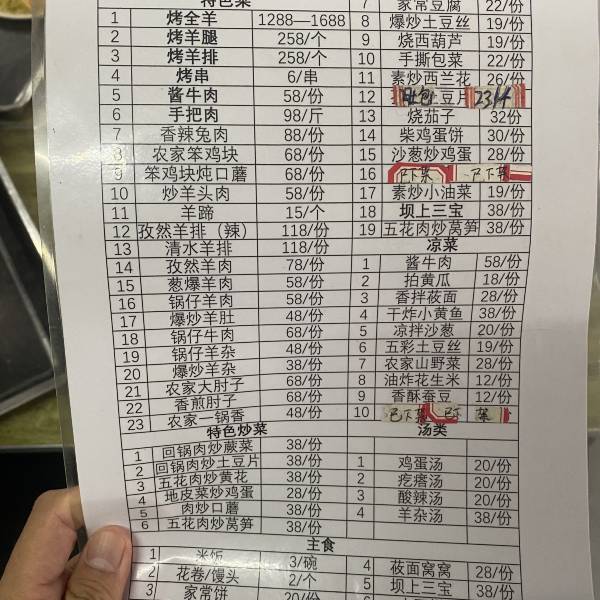 特色菜
1 烤全羊 1288—1688
2 烤羊腿 258/个
3 烤羊排 258/个
4 烤串 6/串
5 酱牛肉 58/份
6 手把肉 98/斤
7 香辣兔肉 88/份
8 农家笨鸡块 68/份
9 笨鸡块炖口蘑 68/份
10 炒羊头肉 58/份
11 羊蹄 15/个
12 孜然羊排（辣） 118/份
13 清水羊排 118/份
14 孜然羊肉 78/份
15 葱爆羊肉 58/份
16 锅仔羊肉 58/份
17 爆炒羊肚 48/份
18 锅仔牛肉 68/份
19 锅仔羊杂 48/份
20 爆炒羊杂 38/份
21 农家大肘子 68/份
22 香煎肘子 68/份
23 农家一锅香 48/份
特色炒菜
1 回锅肉炒蕨菜 38/份
2 回锅肉炒土豆片 38/份
3 五花肉炒黄花 38/份
4 地皮菜炒鸡蛋 28/份
5 肉炒口蘑 38/份
6 五花肉炒莴笋 38/份
7 家常豆腐 22/份
8 爆炒土豆丝 19/份
9 烧西葫芦 19/份
10 手撕包菜 22/份
11 素炒西兰花 26/份
12 豆片 23/4
13 烧茄子 32份
14 柴鸡蛋饼 30/份
15 沙葱炒鸡蛋 28/份
16 已下菜 已下菜
17 素炒小油菜 19/份
18 坝上三宝 38/份
19 五花肉炒莴笋 38/份
凉菜
1 酱牛肉 58/份
2 拍黄瓜 18/份
3 香拌莜面 28/份
4 干炸小黄鱼 38/份
5 凉拌沙葱 20/份
6 五彩土豆丝 19/份
7 农家山野菜 28/份
8 油炸花生米 12/份
9 香酥蚕豆 12/份
10 已下菜 已下 菜
汤类
1 鸡蛋汤 20/份
2 疙瘩汤 20/份
3 酸辣汤 20/份
4 羊杂汤 38/份
主食
1 米饭 3/碗
2 花卷/馒头 2/个
3 家常饼 20/份
4 莜面窝窝 28/份
5 坝上三宝 38/份